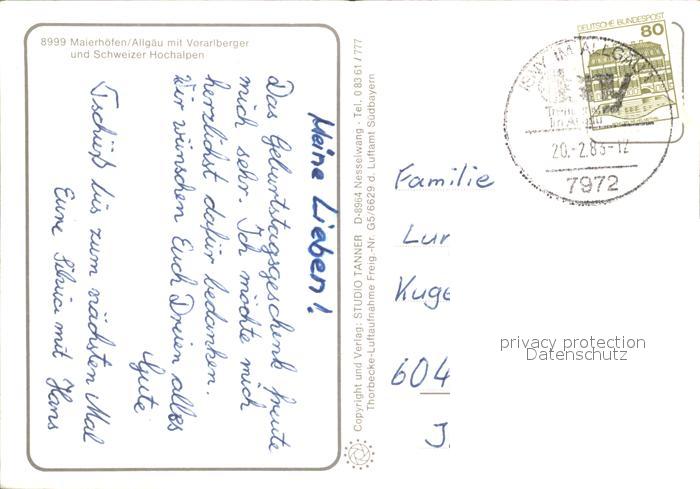 8999 Maierhöfen/Allgäu mit Vorarlberger
und Schweizer Hochalpen
Meine Lieben!
Das Geburtstagsgeschenk freute
mich sehr. Ich möchte mich
herzlichst dafür bedanken.
Wir wünschen Euch Dreien alles
Gute
Tschüß bis zum nächsten Mal
Eure Silvia mit Hans
Copyright und Verlag: STUDIO TANNER D-8964 Nesselwang · Tel. 0 83 61 / 777
Thorbecke-Luftaufnahme Freig.-Nr. G5/6629 d. Luftamt Südbayern
DEUTSCHE BUNDESPOST
80
ISNY IM ALLGÄU
20.-2.83-12
7972
Familie
Lur
Kuge
604
J.
privacy protection
Datenschutz